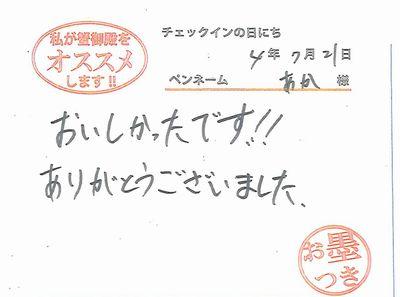 私が蟹御殿を
オススメ
します!!
チェックインの日にち
4年7月21日
ペンネーム あか 様
おいしかったです!!
ありがとうございました、
お墨
つき